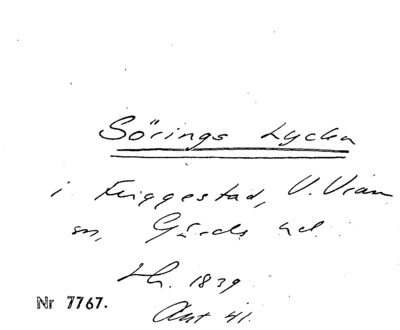 Sörings Lycka
i Friggestad, V. Vram
sn, Gärds hd.
Lh. 1839
Nr 7767.
Akt 41.